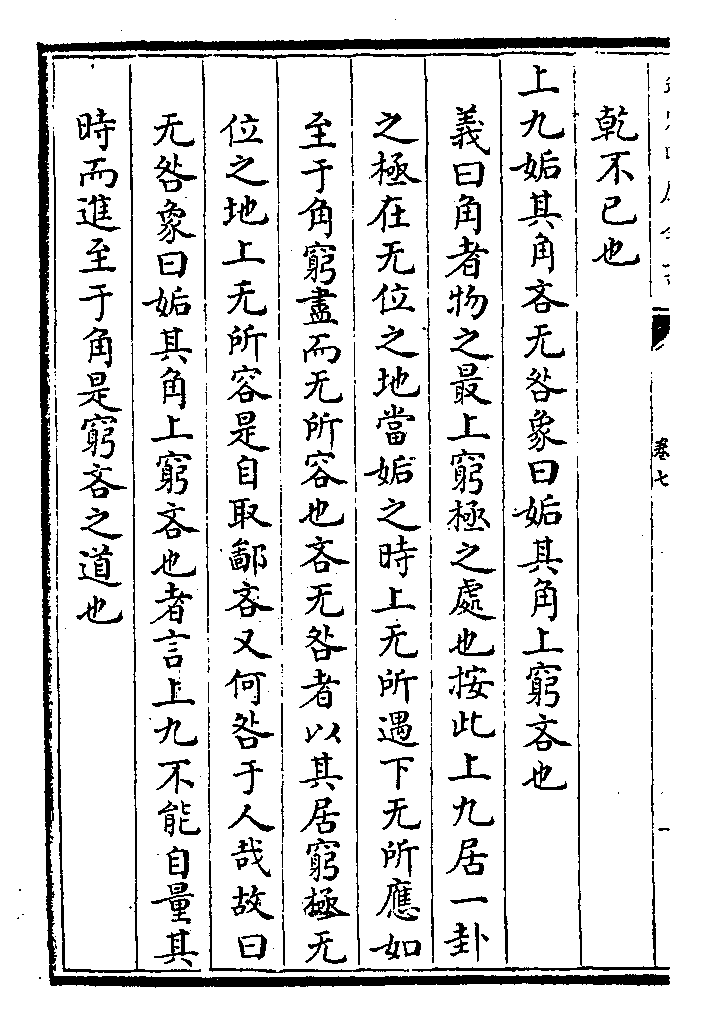 卷七
乾不已也
上九姤其角吝无咎象曰姤其角上窮吝也
義曰角者物之最上窮極之處也按此上九居一卦
之極在无位之地當姤之時上无所遇下无所應如
至于角窮盡而无所容也吝无咎者以其居窮極无
位之地上无所容是自取鄙吝又何咎于人哉故曰
无咎象曰姤其角上窮吝也者言上九不能自量其
時而進至于角是窮吝之道也